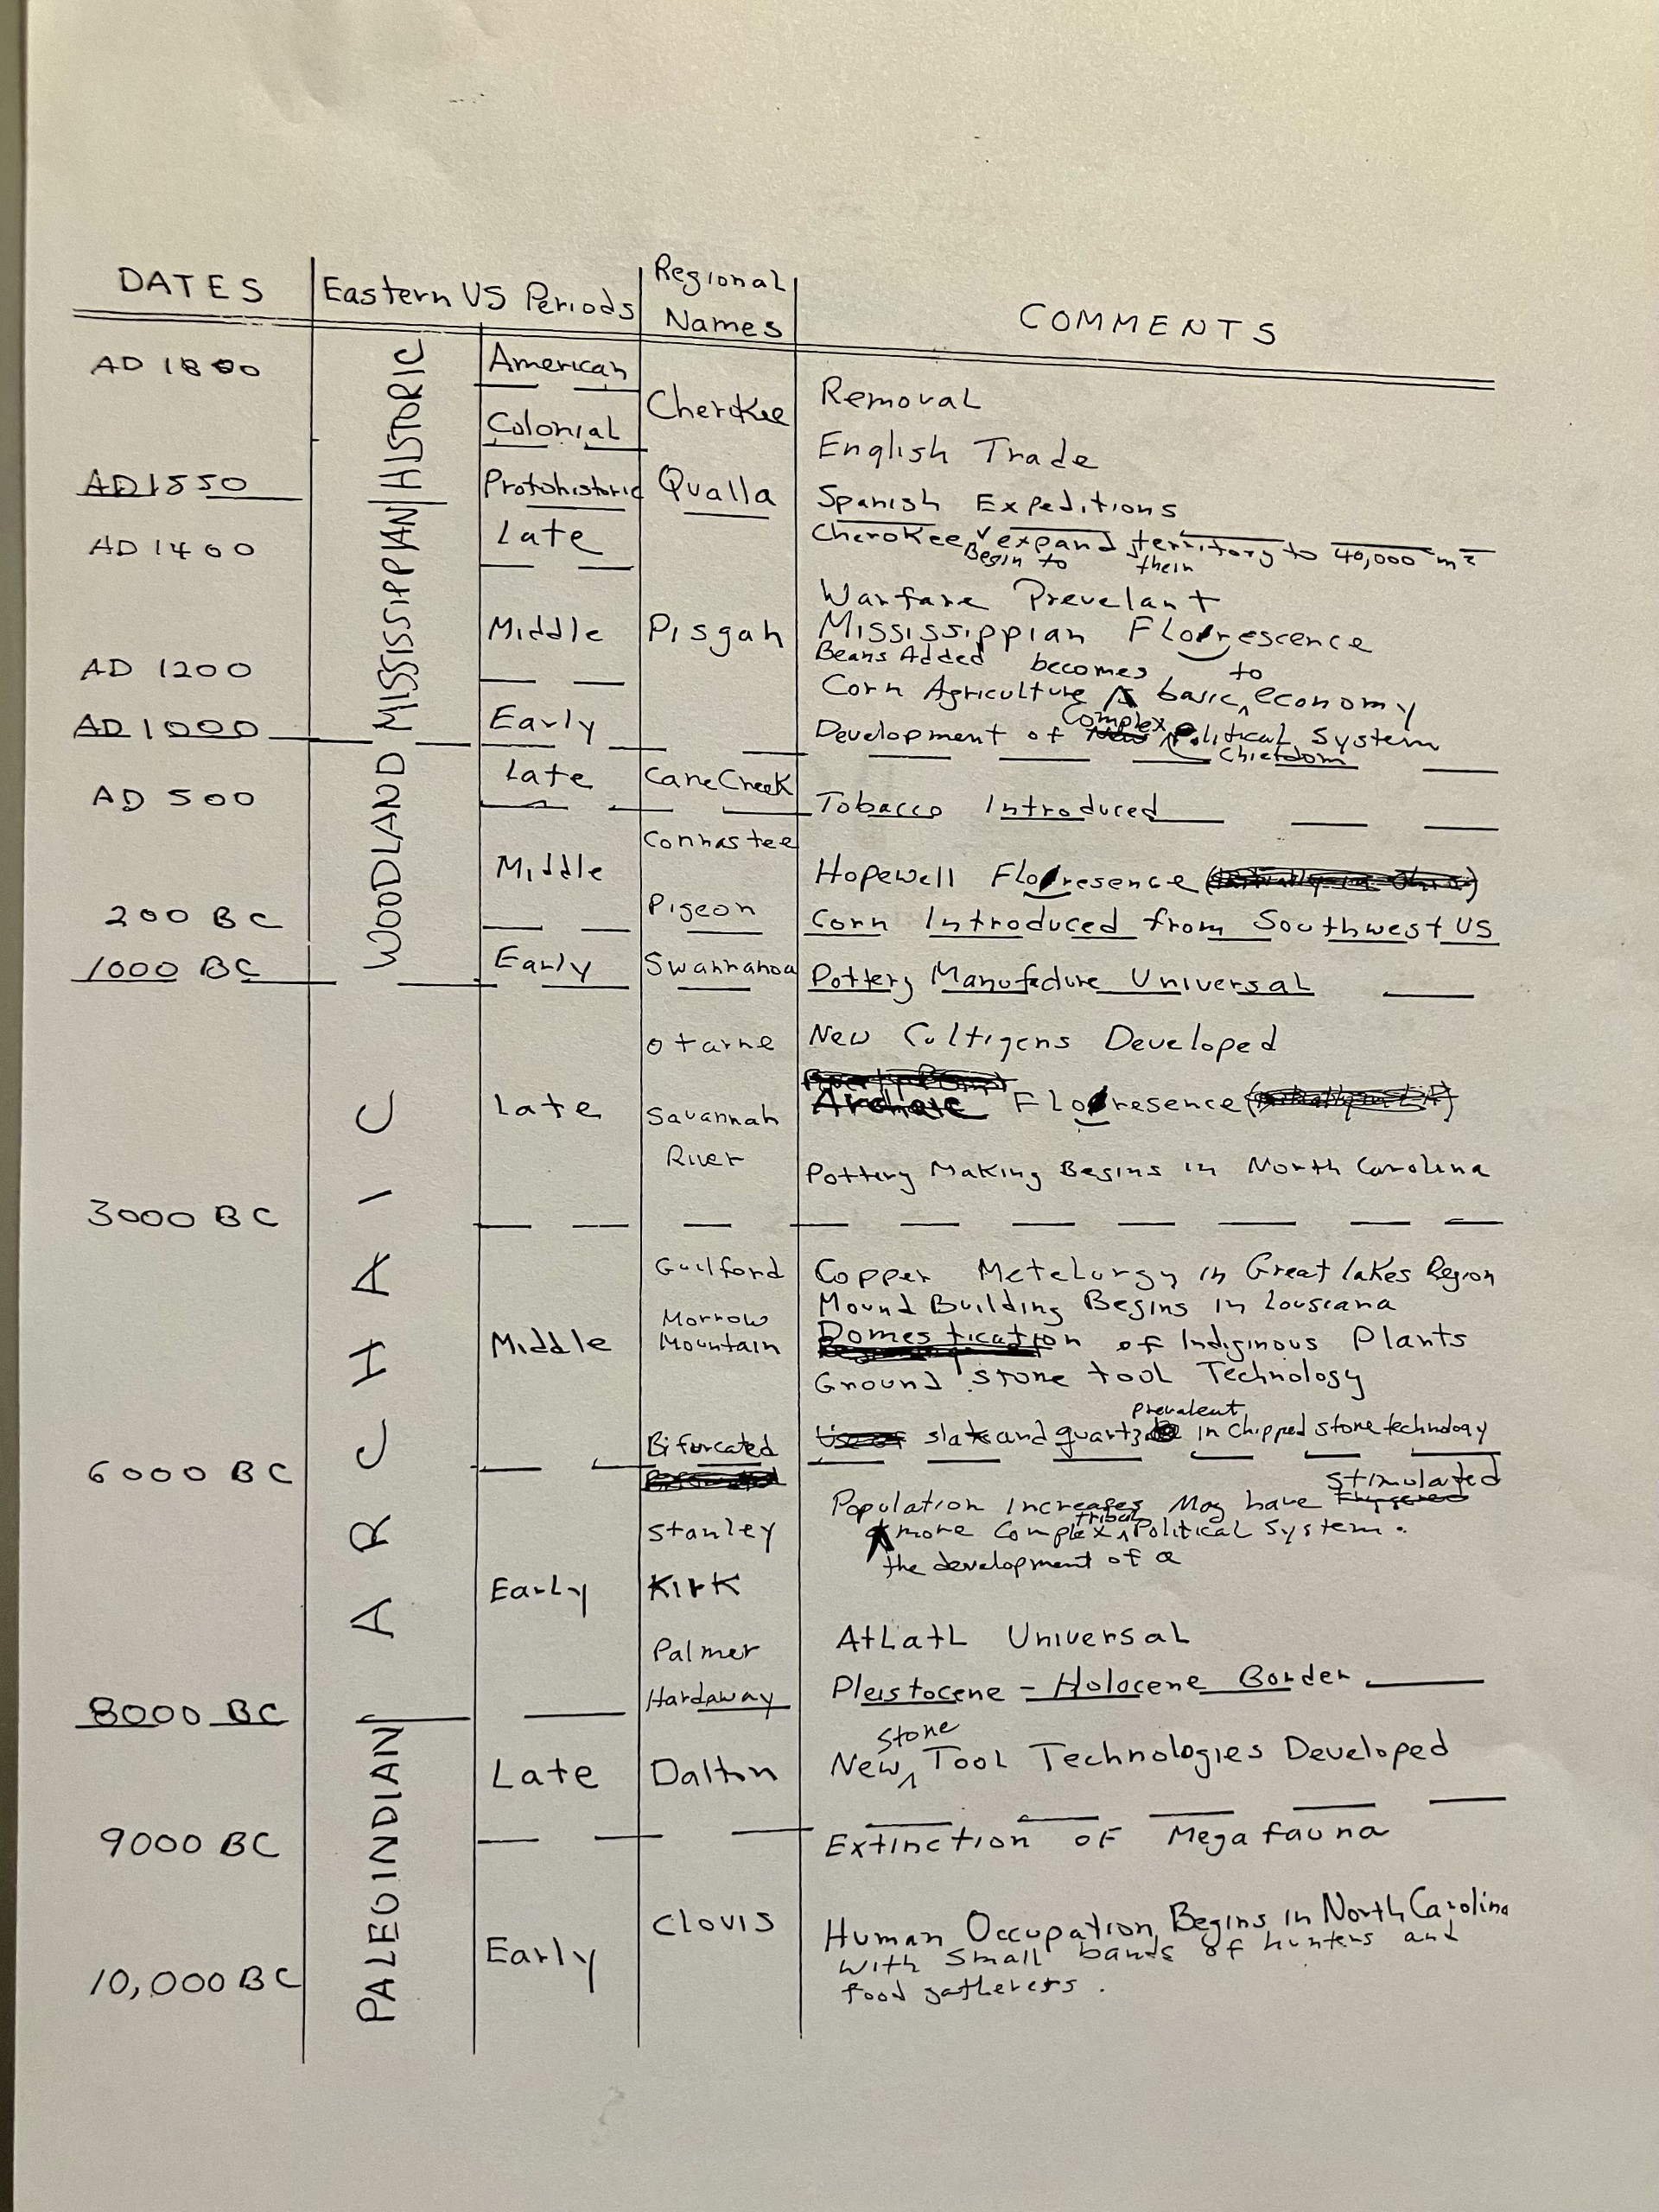 DATES Eastern US Periods Regional Names COMMENTS
HISTORIC
AD 1800 American
Cherokee Removal
Colonial English Trade
AD 1550 Protohistoric Qualla Spanish Expeditions
MISSISSIPPIAN
AD 1400 Late Cherokee Begin to expand their territory to 40,000 m²
Warfare Prevelant
Middle Pisgah Mississippian Florescence
Beans Added
AD 1200 Corn Agriculture becomes basic to economy
AD 1000 Early Development of Complex Political System
Chiefdom
WOODLAND
Late Cane Creek
AD 500 Tobacco Introduced
Connastee
Middle Hopewell Floresence
200 BC Pigeon Corn Introduced from Southwest US
1000 BC Early Swannanoa Pottery Manufacture Universal
ARCHAIC
Otarne New Cultigens Developed
Late Savannah River Archaic Floresence
Pottery Making Begins in North Carolina
3000 BC
Guilford Copper Metelurgy in Great Lakes Region
Mound Building Begins in Lousiana
Middle Morrow Mountain Domestication of Indiginous Plants
Ground stone tool Technology
Bifurcated slate and quartz prevalent in chipped stone technology
6000 BC
Population increases may have stimulated
the development of a more complex tribal Political System.
Stanley
Early Kirk
Palmer Atlatl Universal
Hardaway Pleistocene - Holocene Border
8000 BC
PALEOINDIAN
Late Dalton New Stone Tool Technologies Developed
9000 BC Extinction of Mega fauna
Clovis Human Occupation Begins in North Carolina
Early with small bands of hunters and
10,000 BC food gatherers.